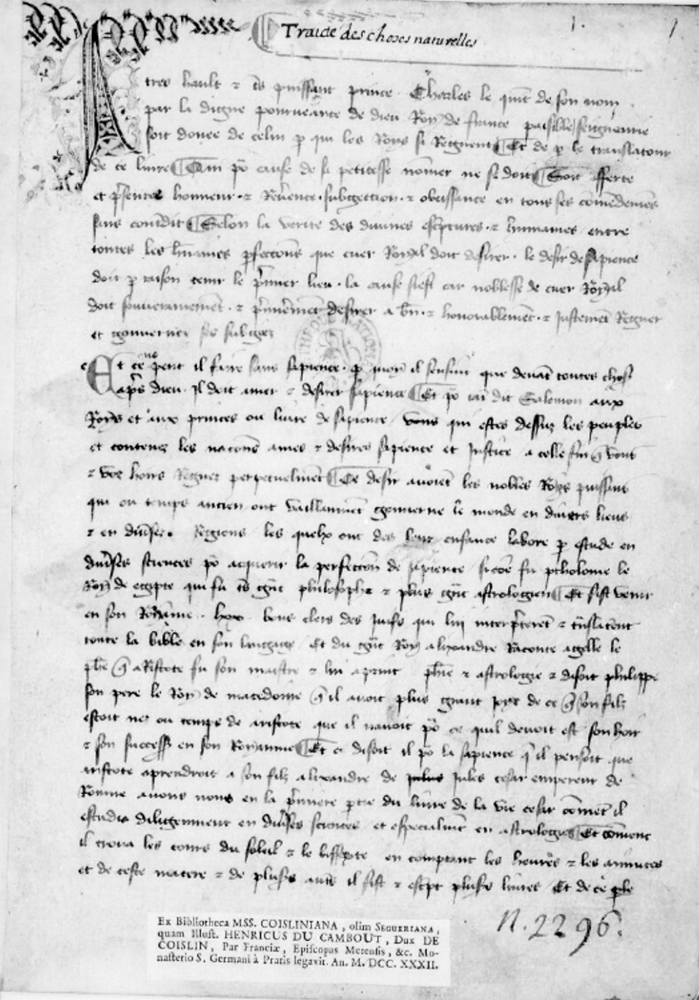 Traicte des choses naturelles
1. 1
A tres hault & tres puissant prince Charles le quint de son nom
par la digne pourveance de dieu Roy de france paisible seignourie
soit donee de celui p qui les Roys si Regnent Et de p le translatour
de ce livre Qui po cause de sa petitesse nomer ne se doit Soit offerte
et psentee honneur & Reverence subgection & obeissance en tous ses comendemens
sans contredit Selon la verite des divines escriptures & humaines entre
toutes les humaines pfections que cuer Royal doit desirer le desir de sapience
doit p raison tenir le pmier lieu la cause si est car noblesse de cuer Royal
doit souverainement & pmierement desirer a bn & honorablement & justement Regner
et gouverner ses subgez
Et ce ne peut il faire sans sapience p quoy il sensuit que devant toutes choses
aps dieu Il doit amer & desirer sapience Et po ce dit Salomon aux
Roys et aux princes ou livre de sapience vous qui estes dessus les peuples
et contenez les nacions ames & desires sapience et Justice a celle fin q vous
& voz hoirs Regnez perpetuelment Ce desir avoient les nobles Roys puissans
qui ou temps ancien ont vaillament gouverne le monde en divers lieux
& en diverses Regions les quelx ont des leur enfance laboure p estude en
diverses sciences po acquerir la perfection de sapience sicoe fu ptholome le
Roy de egypte qui fu tres grant philosophe & plus grant astrologien Et fist venir
en son Royaume lxx bons clers des Juifs qui lui interpreterent & translaterent
toute la bible en son langage Et du grant Roy alixandre Raconte agelle le
phe q aristote fu son maistre & lui aprint phie & astrologie & disoit philippe
son pere le Roy de macedoine q il avoit plus grant joye de ce q son filz
estoit nez ou temps de aristote que il navoit po ce quil devoit est son hoir
& son successeur en son Royaume Et ce disoit il po la sapience q il pensoit que
aristote aprendroit a son filz alixandre de Jules cesar empereur de
Romme avons nous en la pmiere ptie du livre de la vie cesar coment il
estudia diligemment en diverses sciences et especialment en astrologie Et coment
il trova les cours du soleil & le bissexte en comptant les heures & les minutes
et de ceste matere & de plusrs autres il fist & escript plusrs livres Et de ce ple
Ex Bibliotheca MSS. COISLINIANA, olim SEGUERIANA,
quam Illust. HENRICUS DU CAMBOUT, Dux DE
COISLIN, Par Franciæ, Episcopus Metensis, &c. Mo-
nasterio S. Germani à Pratis legavit. An. M. DCC. XXXII.
N. 2296.